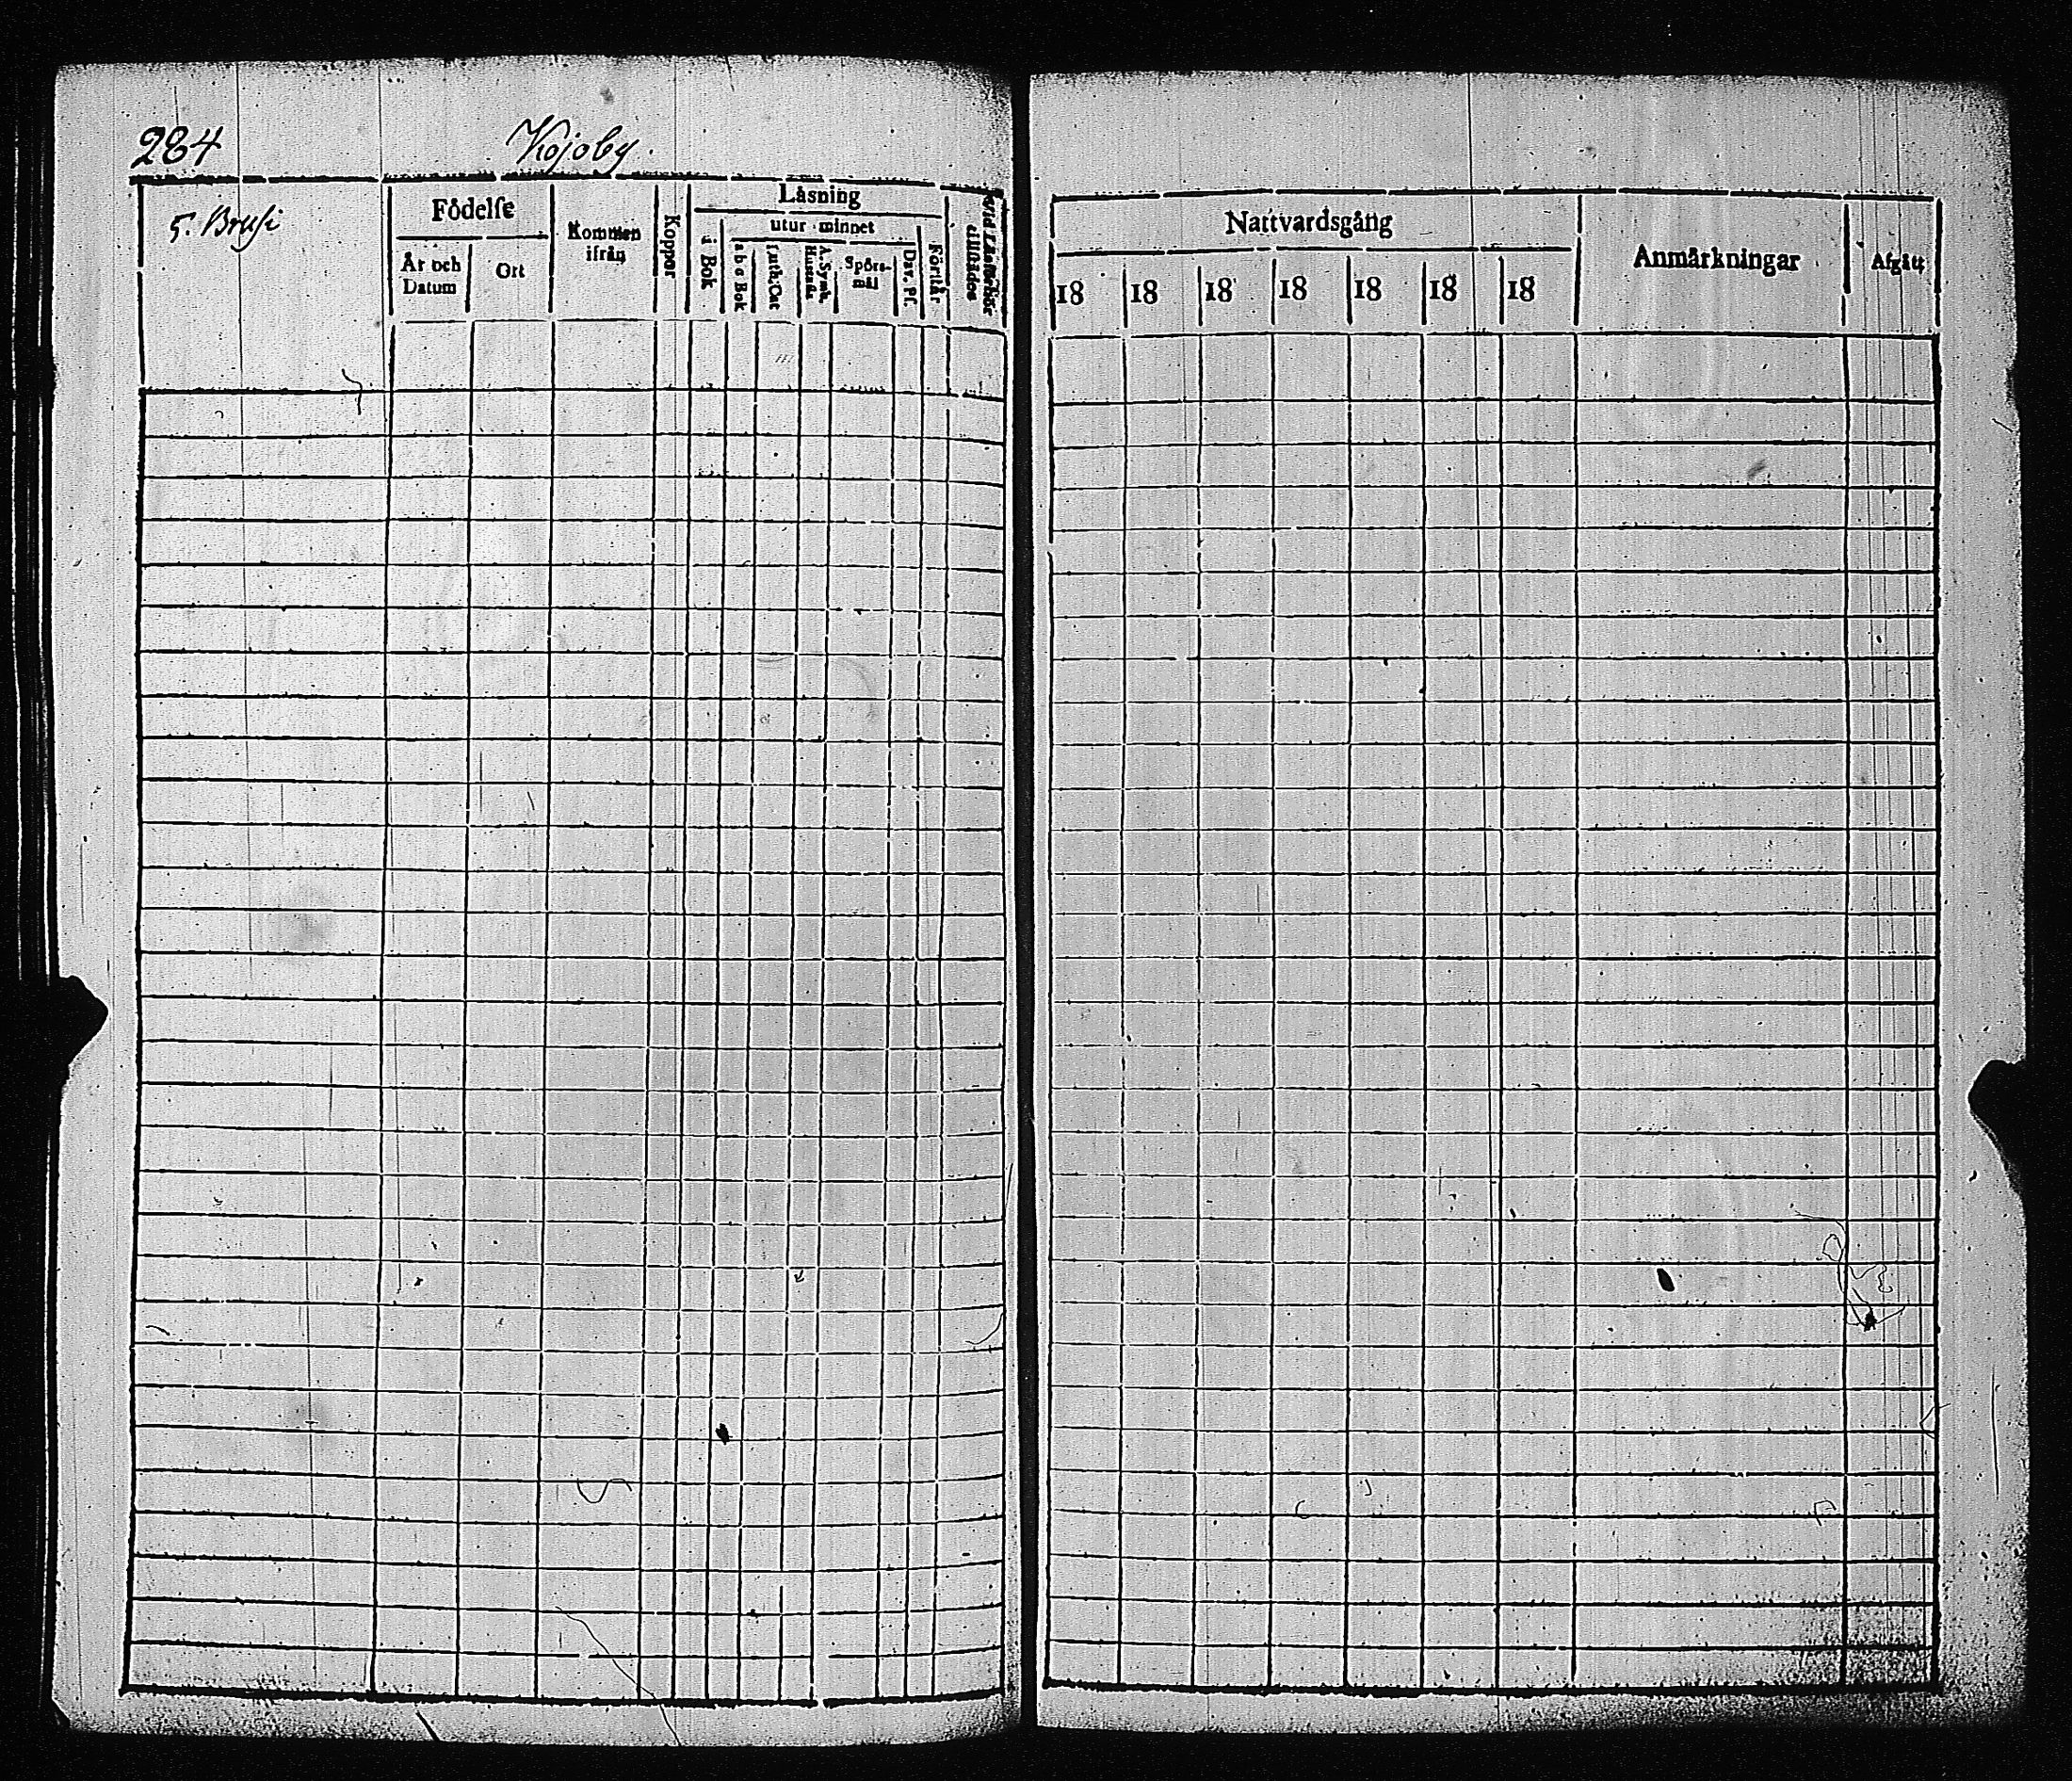 284
Kojoby.
5. Brusi
Födelse
År och Datum
Ort
Kommen ifrån
Koppor
Läsning
i Bok
utur minnet
a b c Bok
Luth. Cat
A. Symb.
Hustafla
Spörs-mål
Dav. Ps.
Förstår
Nattvardsgång
18 18 18 18 18 18 18
Anmärkningar
Afgått